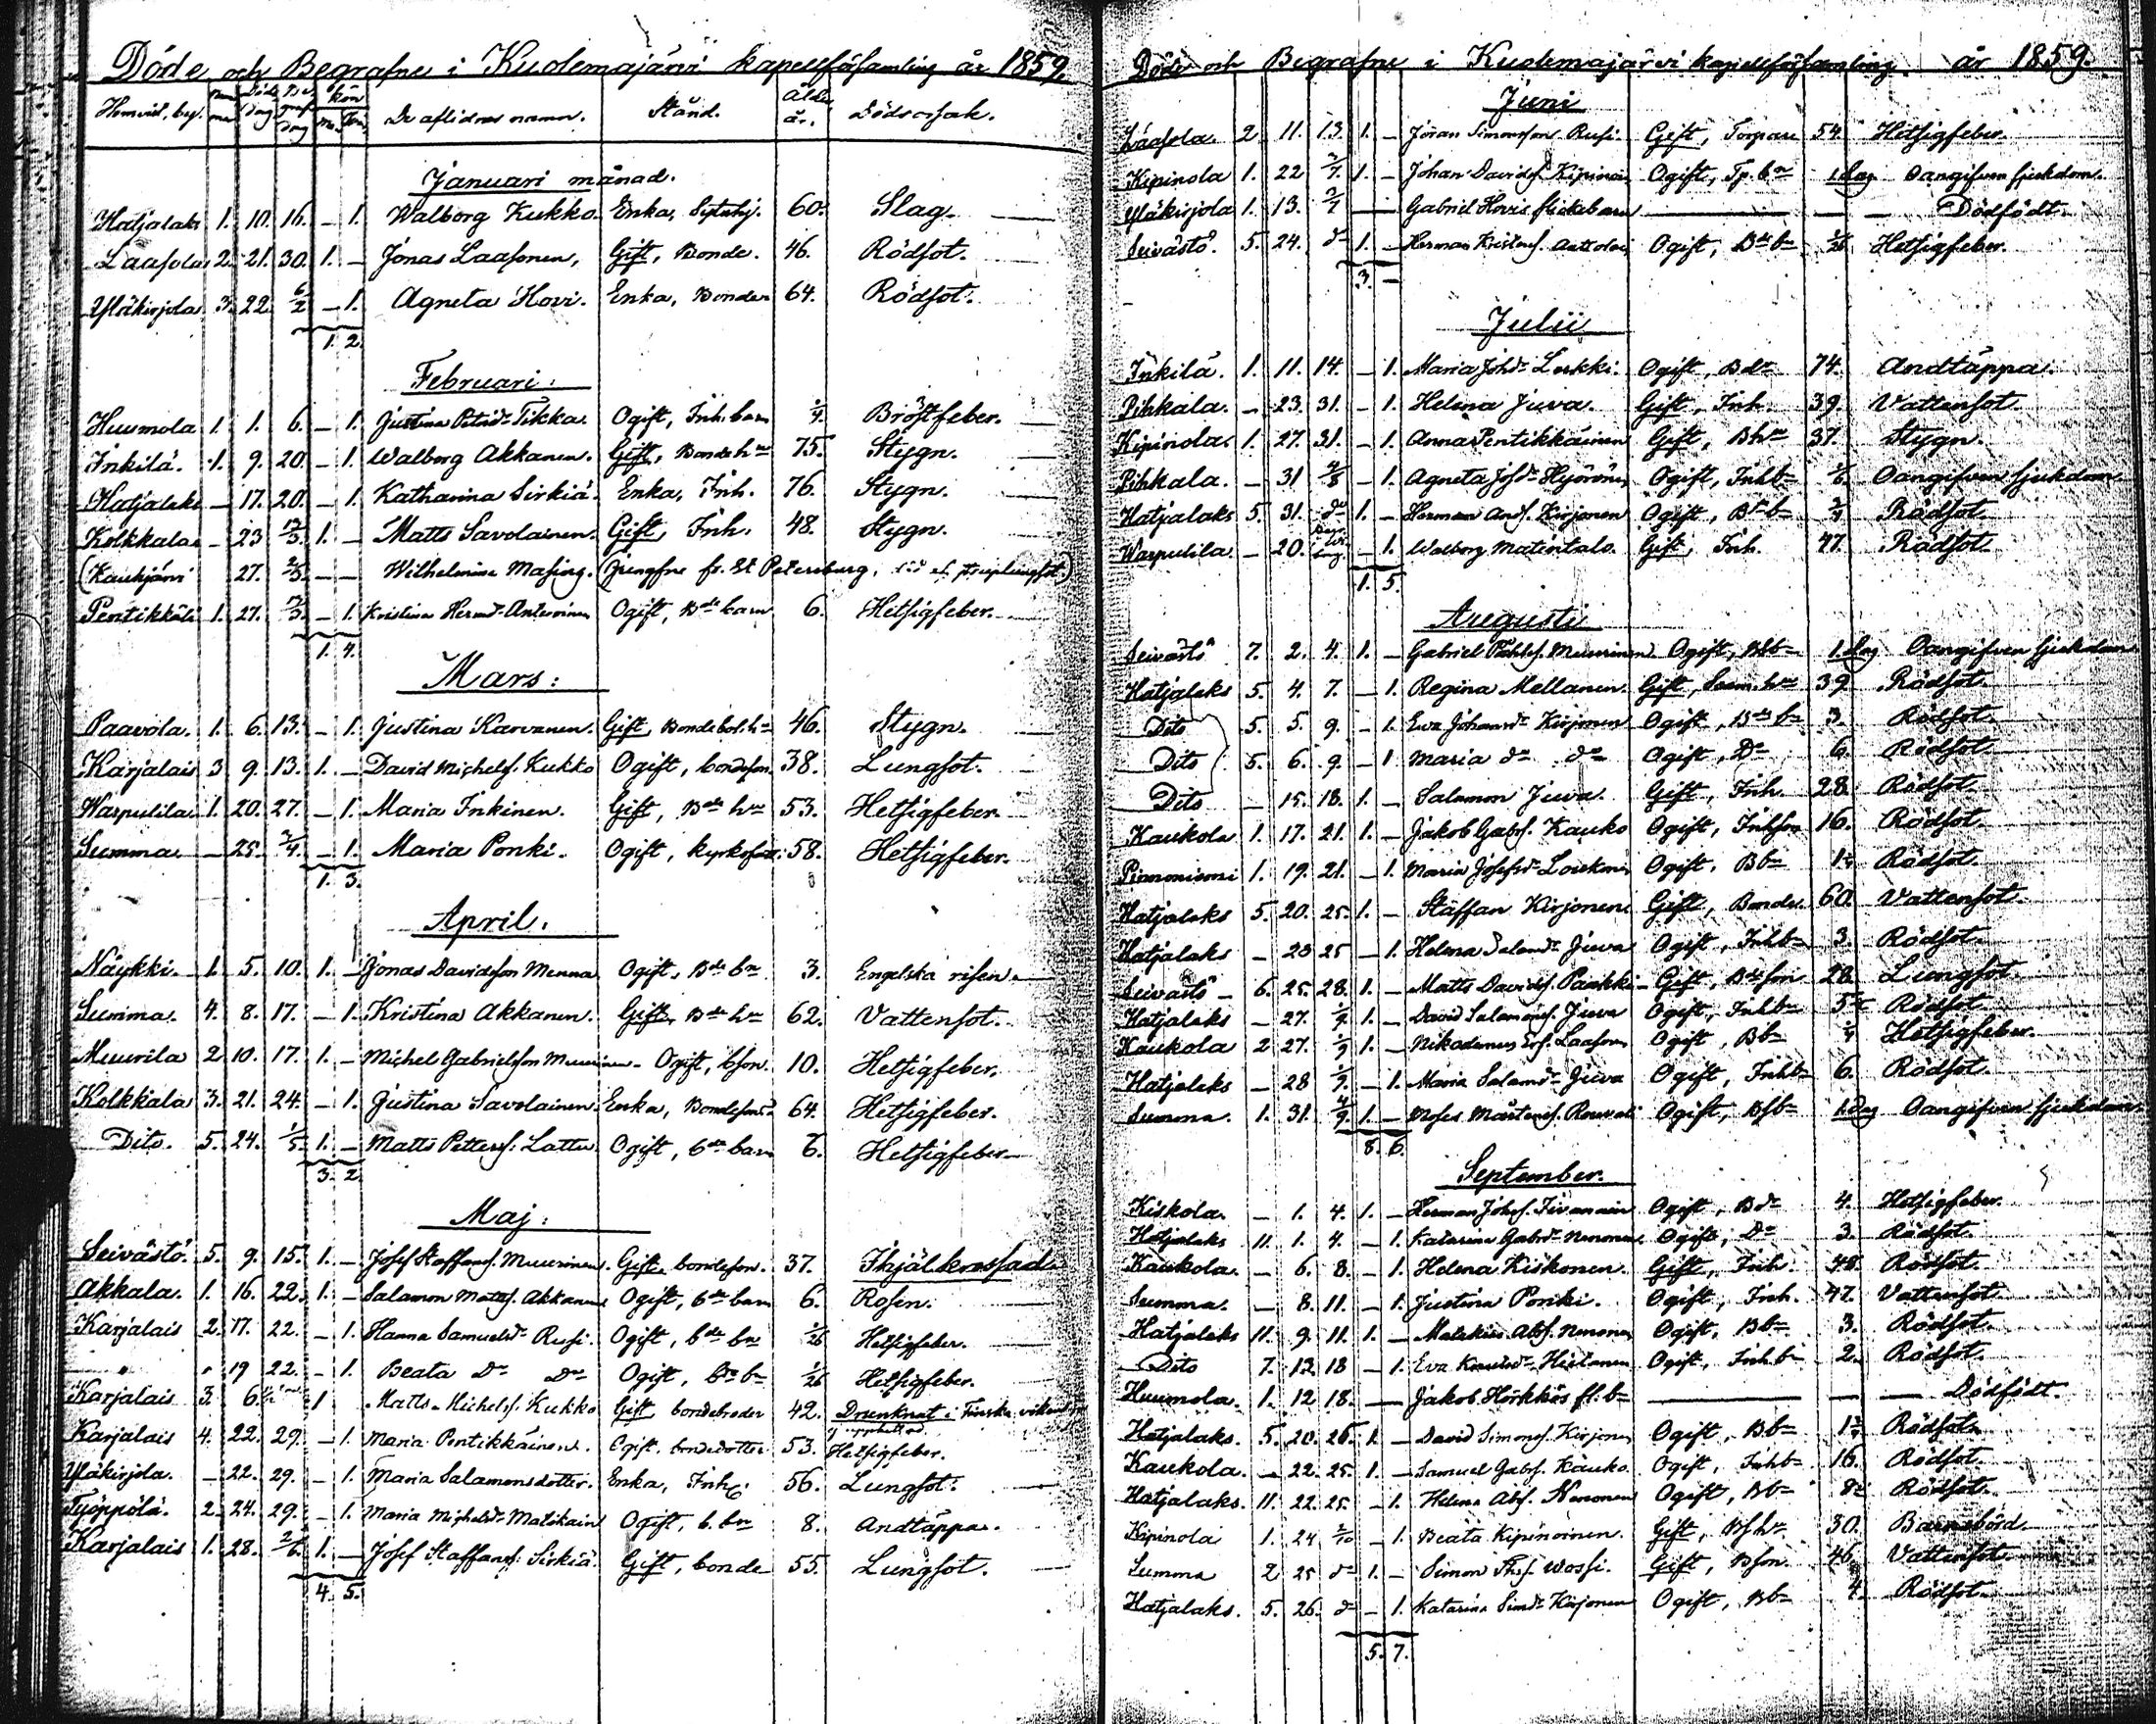 Döde och Begrafne i Kuolemajärvi kapellförsamling år 1859.
Hemvist, by. Num mer Döds dag Be graf. dag kön M. Qvin. De aflidnes namn. Stånd. Ålder år. Dödsorsak.
Januari månad.
Hatjalaks 1. 10. 16. – 1. Walborg Kukko. Enka, 60. Slag.
Laasola 2. 21. 30. 1. – Jonas Laasonen, Gift, Bonde. 46. Rödsot.
Yläkirjola 3. 22. 6/2 – 1. Agneta Hovi. Enka, Bonde 64. Rödsot.
1. 2.
Februari:
Huumola 1. 1. 6. – 1. Justina Petrid:r Tikka. Ogift, Inh. barn 1/4. Bröstfeber.
Inkilä. 1. 9. 20. – 1. Walborg Akkanen. Gift, Bonde h:u 75. Stygn.
Hatjalaks – 17. 20. – 1. Katharina Sirkiä. Enka, Inh. 76. Stygn.
Kolkkala – 23 13/3 1. – Matts Savolainen. Gift, Inh. 48. Stygn.
(Kaukjärvi 27. 2/3. – – Wilhelmina Masing. (jungfru fr. St Petersburg, död af
Pentikkälä 1. 27. – 1. Kristina Hermd:r Ogift, B:de barn 6. Hetsigfeber.
1. 4.
Mars:
Paavola. 1. 6. 13. – 1. Justina Karvanen. Gift, 46. Stygn.
Karjalais 3 9. 13. 1. – David Michelss. Kukko Ogift, bondeson. 38. Lungsot.
Warpulila 1. 20. 27. – 1. Maria Inkinen. Gift, B:de h:u 53. Hetsigfeber.
Summa – 25. 3/4. – 1. Maria Ponki. Ogift, 58. Hetsigfeber.
1. 3.
April.
Näykki. 1. 5. 10. 1. – Jonas Davidsson Menna Ogift, B:de b:n 3. Engelska risen.
Summa. 4. 8. 17. – 1. Kristina Akkanen. Gift, B:de h:u 62. Vattensot.
Muurila 2. 10. 17. 1. – Michel Gabrielsson Muurinen. Ogift, bson. 10. Hetsigfeber.
Kolkkala 3. 21. 24. – 1. Justina Savolainen. Enka, 64. Hetsigfeber.
Dito. 5. 24. 1/5. 1. – Matts Petterss. Lattu Ogift, b:de barn 6. Hetsigfeber.
3. 2.
Maj:
Seivästö. 5. 9. 15. 1. – Josef Staffanss. Muurinen. Gift. bondeson. 37. Ihjälkrossad.
Akkala. 1. 16. 22. 1. – Salamon Mattss. Akkanen Ogift, b:de barn 6. Rosen.
Karjalais 2. 17. 22. – 1. Hanna Samuelsd:r Rusi. Ogift, b:de b:n 1/26 Hetsigfeber.
" " 19 22. – 1. Beata D:o D:o Ogift, b:de b:n 1/26 Hetsigfeber.
Karjalais 3. 6. 1 Matts Michelss. Kukko Gift bondebroder 42. Drunknat i Finska viken
Karjalais 4. 22. 29. – 1. Maria Pentikkäinen. Ogift. bondedotter 53. Hetsigfeber.
Yläkirjola. – 22. 29. – 1. Maria Salamonsdotter. Enka, Inh. 56. Lungsot.
Työppölä. 2. 24. 29. – 1. Maria Michelsd:r Ogift, b. b:n 8. Andtäppa.
Karjalais 1. 28. 2/6. 1. – Josef Staffanss. Sirkiä. Gift, bonde 55. Lungsot.
4. 5.
Döde och Begrafne i Kuolemajärvi kapellförsamling år 1859.
Juni
Laasola. 2 11. 13. 1. – Jöran Simonsson Rusi. Gift, Torpare 54. Hetsigfeber.
Kipinola 1. 22 3/7. 1. – Johan Davidss. Kipinoin Ogift, Tp. b:n 1.dag Oangifven sjukdom.
Yläkirjola 1. 13. 3/7 — Gabriel Hovis flickebarn — — Dödfödt.
Seivästö. 5. 24. d:o 1. – Herman Ogift, B:de b:n 1/26 Hetsigfeber.
3. –
Julii
Inkilä. 1. 11. 14. – 1. Maria Johd:r Ogift, 74. Andtäppa.
Pihkala. – 23. 31. – 1. Helena Juva. Gift, Inh. 39. Vattensot.
Kipinola 1. 27. 31. – 1. Anna Pentikkäinen Gift, Bh:u 37. Stygn.
Pihkala. – 31 – 1. Agneta Ogift, Inh b:n Oangifven sjukdom
Hatjalaks 5. 31. d:o 1. – Herman Ands. Kirjonen Ogift, Rödsot.
Warpulila. – 20. – 1. Walborg Matintalo. Gift, Inh. 47. Rödsot.
1. 5.
Augusti
Seivästö 7. 2. 4. 1. – Gabriel Muurinen. Ogift, 1.dag Oangifven sjukdom
Hatjalaks 5. 4. 7. – 1. Regina Mellanen. Gift, 39. Rödsot.
Dito 5. 5. 9. – 1. Eva Johansd:r Kirjonen Ogift, B:de b:n 3. Rödsot.
Dito 5. 6. 9. – 1 Maria d:o d:o Ogift, D:o 6. Rödsot.
Dito – 15. 18. 1. – Salamon Juva. Gift, Inh. 28. Rödsot.
Kaukola 1. 17. 21. 1. – Jakob Gabrs. Kauko Ogift, Inhson 16. Rödsot.
1. 19. 21. – 1. Maria Josefsd:r Ogift, Bb:n Rödsot.
Hatjalaks 5. 20. 25. 1. – Staffan Kirjonen Gift, Bonde. 60. Vattensot.
Hatjalaks – 23 25 – 1. Helena Salamd:r Juva Ogift, Inhb:n 3. Rödsot.
Seivästö – 6. 25. 28. 1. – Matts Davidss. Paukki Gift, 28. Lungsot.
Hatjalaks – 27. 1/9 1. – David Salamonss. Juva Ogift, Inhb:n Rödsot.
Kaukola 2 27. 1/9 1. – Nikodemus Laasonen Ogift, Bb:n Hetsigfeber.
Hatjalaks – 28 1/9. – 1. Maria Salamd:r Juva Ogift, Inhb:n 6. Rödsot.
Summa. 1. 31. 4/9. 1. – Moses Mårtenss. Ogift, 1.Dag Oangifven sjukdom
8. 6.
September.
Kiskola. – 1. 4. 1. – Herman Johss. Ogift, 4. Hetsigfeber.
Hatjalaks 11. 1. 4. – 1. Katarina Gabrd:r Nenonen Ogift, D:o 3. Rödsot.
Kaukola. – 6. 8. – 1. Helena Kiskonen. Gift, Inh. 48. Rödsot.
Summa. – 8. 11. – 1. Justina Ponki. Ogift, Inh. 47. Vattensot.
Hatjalaks 11. 9. 11. 1. – Abss. Nenonen Ogift, Bb:n 3. Rödsot.
Dito 7. 12 18 – 1. Eva Hietanen Ogift, Inh b:n 2. Rödsot.
Huumola. 1. 12 18. – Jakob Hörkkös fl. b:n — — Dödfödt.
Hatjalaks. 5. 20. 26. 1. – David Simonss. Kirjonen Ogift, Bb:n Rödsot.
Kaukola. – 22. 25. 1. – Samuel Gabrs. Kauko. Ogift, Inhb:n 16. Rödsot.
Hatjalaks. 11. 22. 25. – 1. Helena Abs. Nenonen Ogift, Bb:n Rödsot.
Kipinola 1. 24 2/10 – 1. Beata Kipinoinen. Gift, 30. Barnsbörd.
Summa 2 25 d:o 1. – Simon Wossi. Gift, Bson. 46. Vattensot.
Hatjalaks. 5. 26. d:o – 1. Katarina Simd:r Kirjonen Ogift, Bb:n 4. Rödsot.
5. 7.